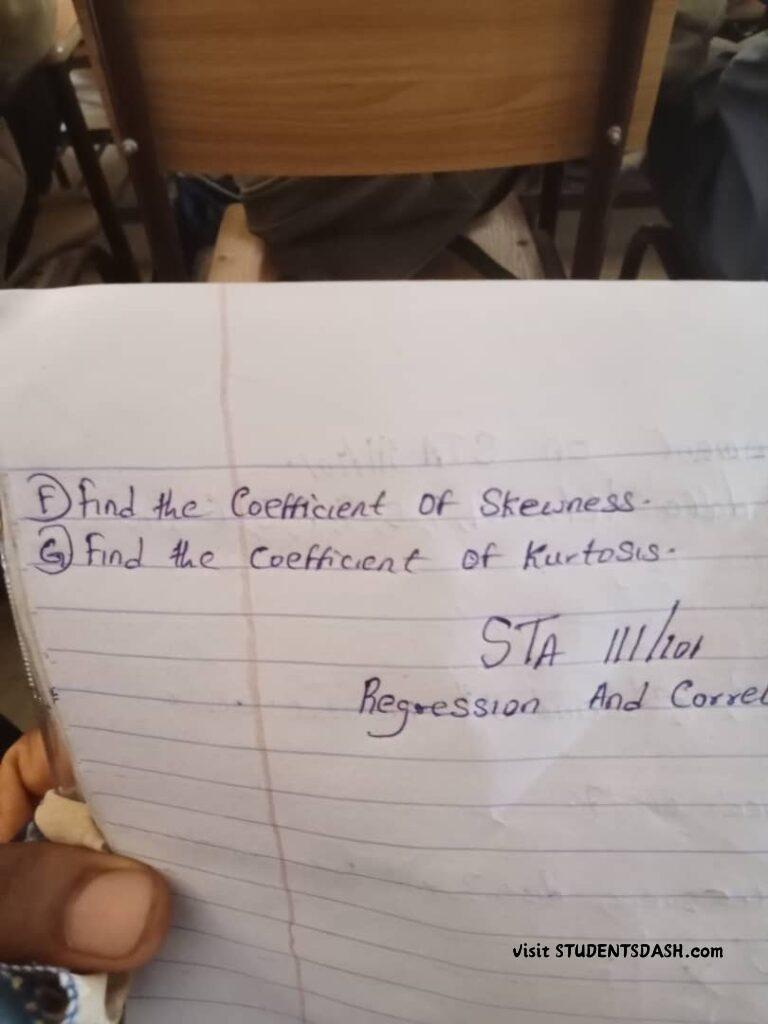 (F) Find the Coefficient of Skewness.
(G) Find the Coefficient of Kurtosis.
STA 111/101
Regression And Correl
Visit STUDENTSDASH.com